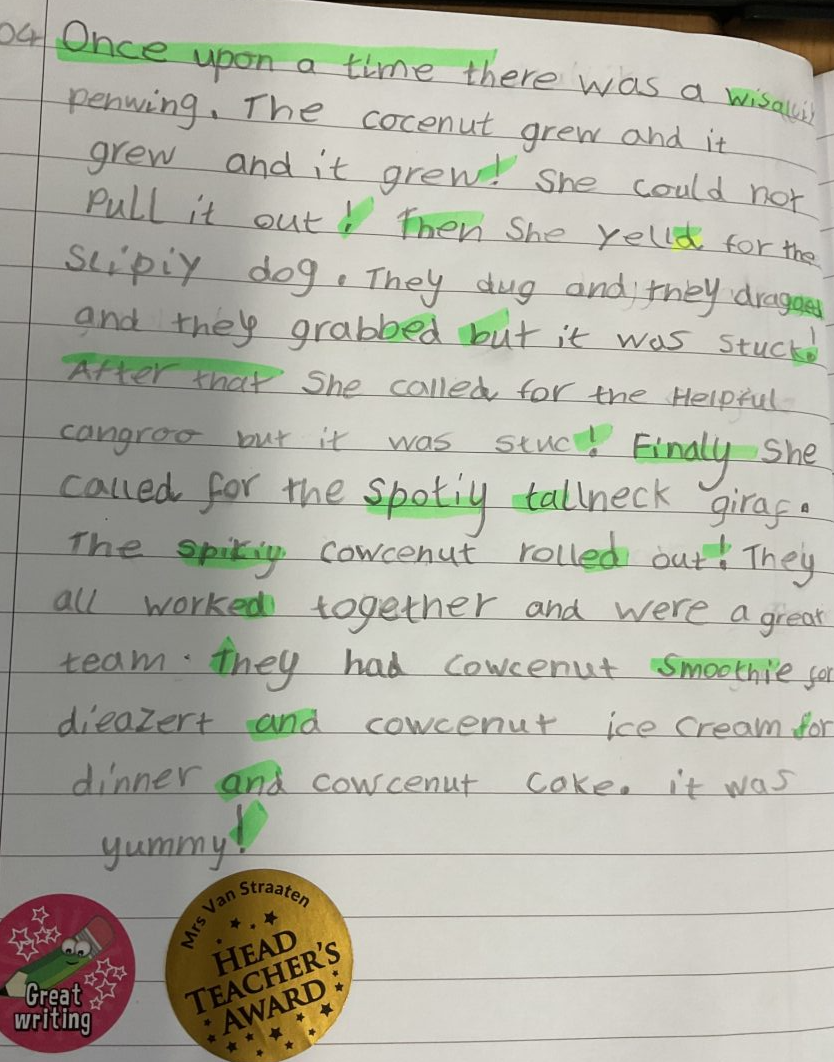 04 Once upon a time there was a
penwing. The cocenut grew and it
grew and it grew! She could not
Pull it out! Then She yelld for the
Slipiy dog. They dug and they dragged
and they grabbed but it was stuck!
After that She called for the Helpful
cangroo but it was stuc! Finaly She
called for the Spotiy tallneck giraf.
The spikiy cowcenut rolled out! They
all worked together and were a great
team. they had cowcenut Smoothie for
dieazert and cowcenut ice cream for
dinner and cowcenut cake. it was
yummy!
Great
writing
Mrs Van Straaten
HEAD
TEACHER'S
AWARD